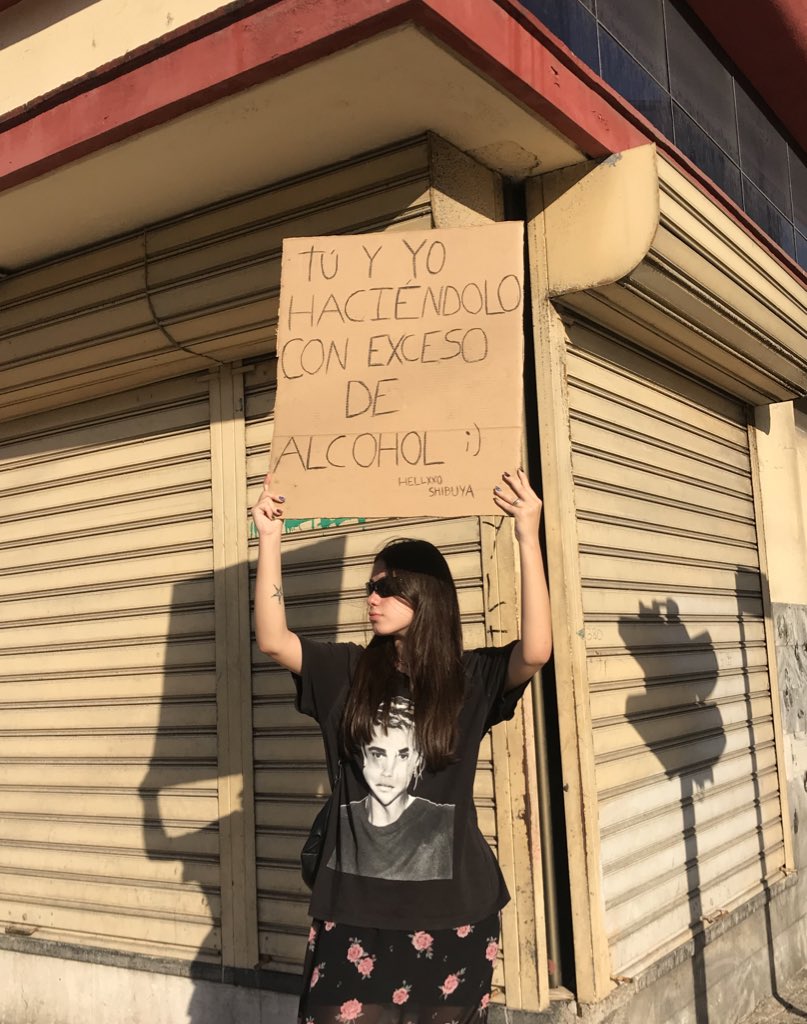 TÚ Y YO
HACIÉNDOLO
CON EXCESO
DE
ALCOHOL ;)
HELLXXO
SHIBUYA